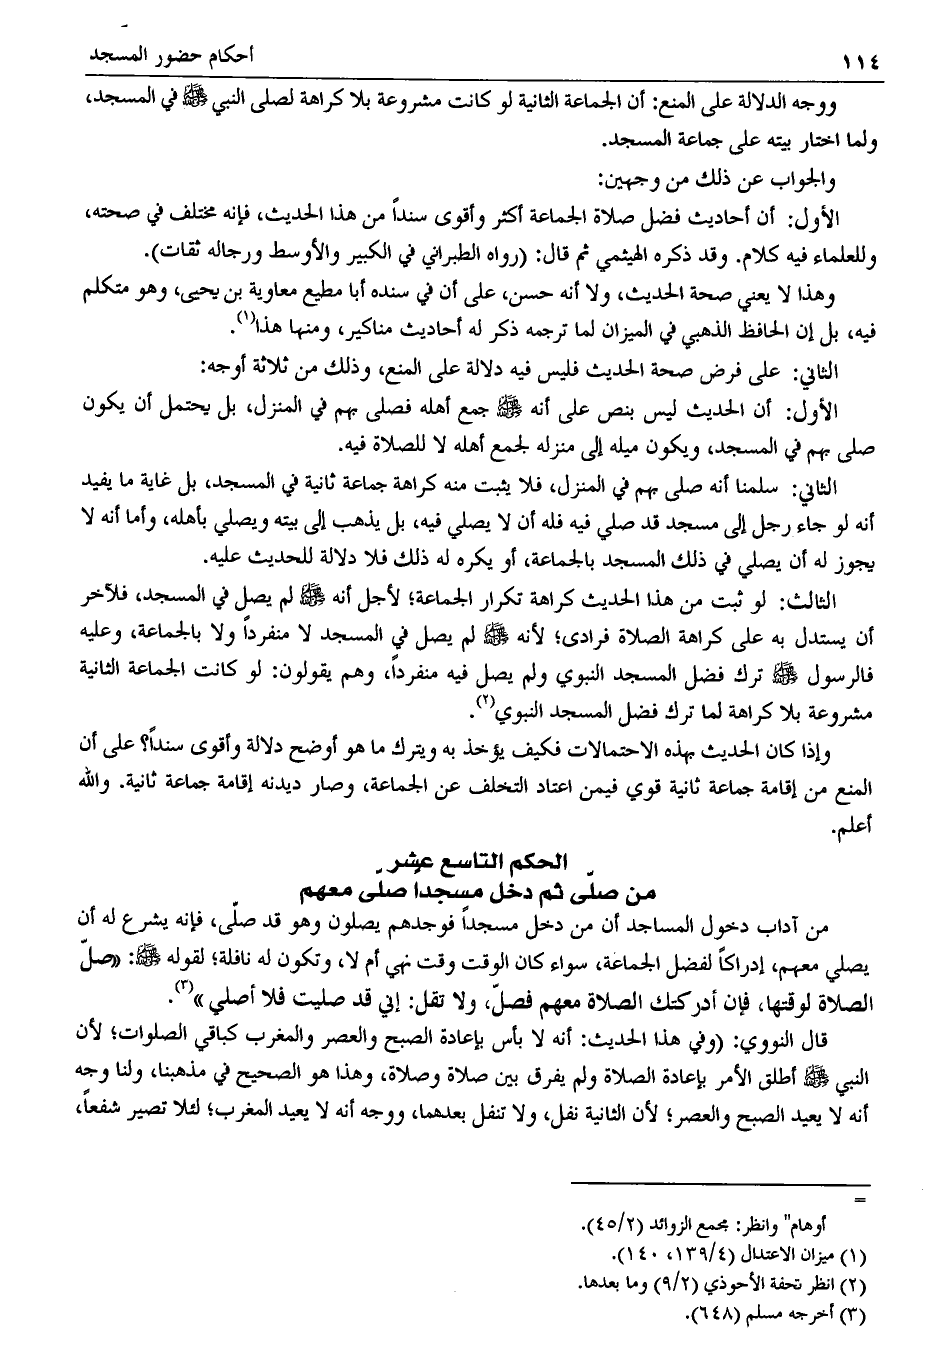 ١١٤
أحكام حضور المسجد
ووجه الدلالة على المنع: أن الجماعة الثانية لو كانت مشروعة بلا كراهة لصلى النبي ﷺ في المسجد،
ولما اختار بيته على جماعة المسجد.
والجواب عن ذلك من وجهين:
الأول: أن أحاديث فضل صلاة الجماعة أكثر وأقوى سنداً من هذا الحديث، فإنه مختلف في صحته،
وللعلماء فيه كلام. وقد ذكره الهيثمي ثم قال: (رواه الطبراني في الكبير والأوسط ورجاله ثقات).
وهذا لا يعني صحة الحديث، ولا أنه حسن، على أن في سنده أبا مطيع معاوية بن يحيى، وهو متكلم
فيه، بل إن الحافظ الذهبي في الميزان لما ترجمه ذكر له أحاديث مناكير، ومنها هذا(١).
الثاني: على فرض صحة الحديث فليس فيه دلالة على المنع، وذلك من ثلاثة أوجه:
الأول: أن الحديث ليس بنص على أنه ﷺ جمع أهله فصلى بهم في المنزل، بل يحتمل أن يكون
صلى بهم في المسجد، ويكون ميله إلى منزله لجمع أهله لا للصلاة فيه.
الثاني: سلمنا أنه صلى بهم في المنزل، فلا يثبت منه كراهة جماعة ثانية في المسجد، بل غاية ما يفيد
أنه لو جاء رجل إلى مسجد قد صلي فيه فله أن لا يصلي فيه، بل يذهب إلى بيته ويصلي بأهله، وأما أنه لا
يجوز له أن يصلي في ذلك المسجد بالجماعة، أو يكره له ذلك فلا دلالة للحديث عليه.
الثالث: لو ثبت من هذا الحديث كراهة تكرار الجماعة؛ لأجل أنه ﷺ لم يصل في المسجد، فلآخر
أن يستدل به على كراهة الصلاة فرادى؛ لأنه ﷺ لم يصل في المسجد لا منفرداً ولا بالجماعة، وعليه
فالرسول ﷺ ترك فضل المسجد النبوي ولم يصل فيه منفرداً، وهم يقولون: لو كانت الجماعة الثانية
مشروعة بلا كراهة لما ترك فضل المسجد النبوي(٢).
وإذا كان الحديث بهذه الاحتمالات فكيف يؤخذ به ويترك ما هو أوضح دلالة وأقوى سنداً؟ على أن
المنع من إقامة جماعة ثانية قوي فيمن اعتاد التخلف عن الجماعة، وصار ديدنه إقامة جماعة ثانية. والله
أعلم.
الحكم التاسع عشر
من صلّى ثم دخل مسجداً صلّى معهم
من آداب دخول المساجد أن من دخل مسجداً فوجدهم يصلون وهو قد صلّى، فإنه يشرع له أن
يصلي معهم، إدراكاً لفضل الجماعة، سواء كان الوقت وقت نهي أم لا، وتكون له نافلة؛ لقوله ﷺ: «صلّ
الصلاة لوقتها، فإن أدركتك الصلاة معهم فصلّ، ولا تقل: إني قد صليت فلا أصلي»(٣).
قال النووي: (وفي هذا الحديث: أنه لا بأس بإعادة الصبح والعصر والمغرب كباقي الصلوات؛ لأن
النبي ﷺ أطلق الأمر بإعادة الصلاة ولم يفرق بين صلاة وصلاة، وهذا هو الصحيح في مذهبنا، ولنا وجه
أنه لا يعيد الصبح والعصر؛ لأن الثانية نفل، ولا تنفل بعدهما، ووجه أنه لا يعيد المغرب؛ لئلا تصير شفعاً،
=
أوهام" وانظر: مجمع الزوائد (٤٥/٢).
(١) ميزان الاعتدال (١٣٩/٤، ١٤٠).
(٢) انظر تحفة الأحوذي (٩/٢) وما بعدها.
(٣) أخرجه مسلم (٦٤٨).